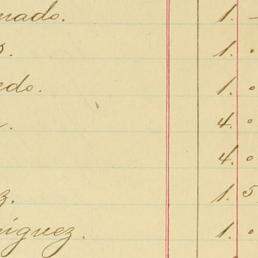 nado. 1. —
o. 1. o
edo. 1. o
. 4. o
4. o
z. 1. 5
íguez. 1. o